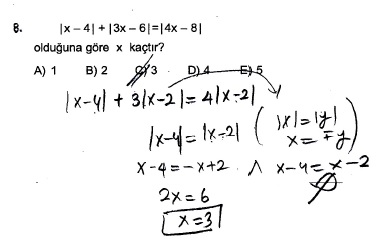 8. |x – 4| + |3x – 6|=|4x – 8|
olduğuna göre x kaçtır?
A) 1 B) 2 C) 3 D) 4 E) 5
|x-4| + 3|x-2| = 4|x-2|
|x-4| = |x-2| ( |x|=|y|
x = ∓y )
x-4=-x+2 ∧ x-4=x-2
2x=6 ∅
x=3